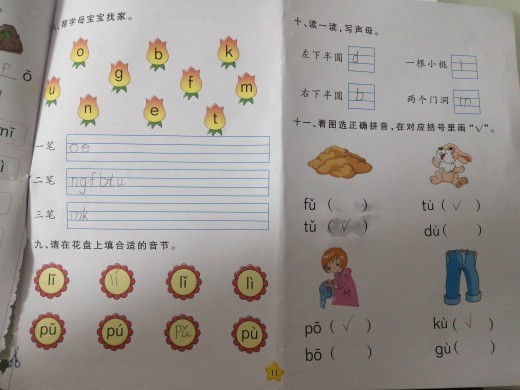 、帮字母宝宝找家。
o b k
g f m
u n e t
一笔 oe
二笔 ngfbtu
三笔 mk
九、请在花盘上填合适的音节。
lī lí lǐ lì
pū pú pǔ pù
11
ō
mī
ì
十、读一读,写声母。
左下半圆 d 一根小棍 l
右下半圆 b 两个门洞 m
十一、看图选正确拼音,在对应括号里画“√”。
fǔ ( ) tù ( √ )
tǔ ( √ ) dù ( )
pō ( √ ) kù ( √ )
bō ( ) gù ( )